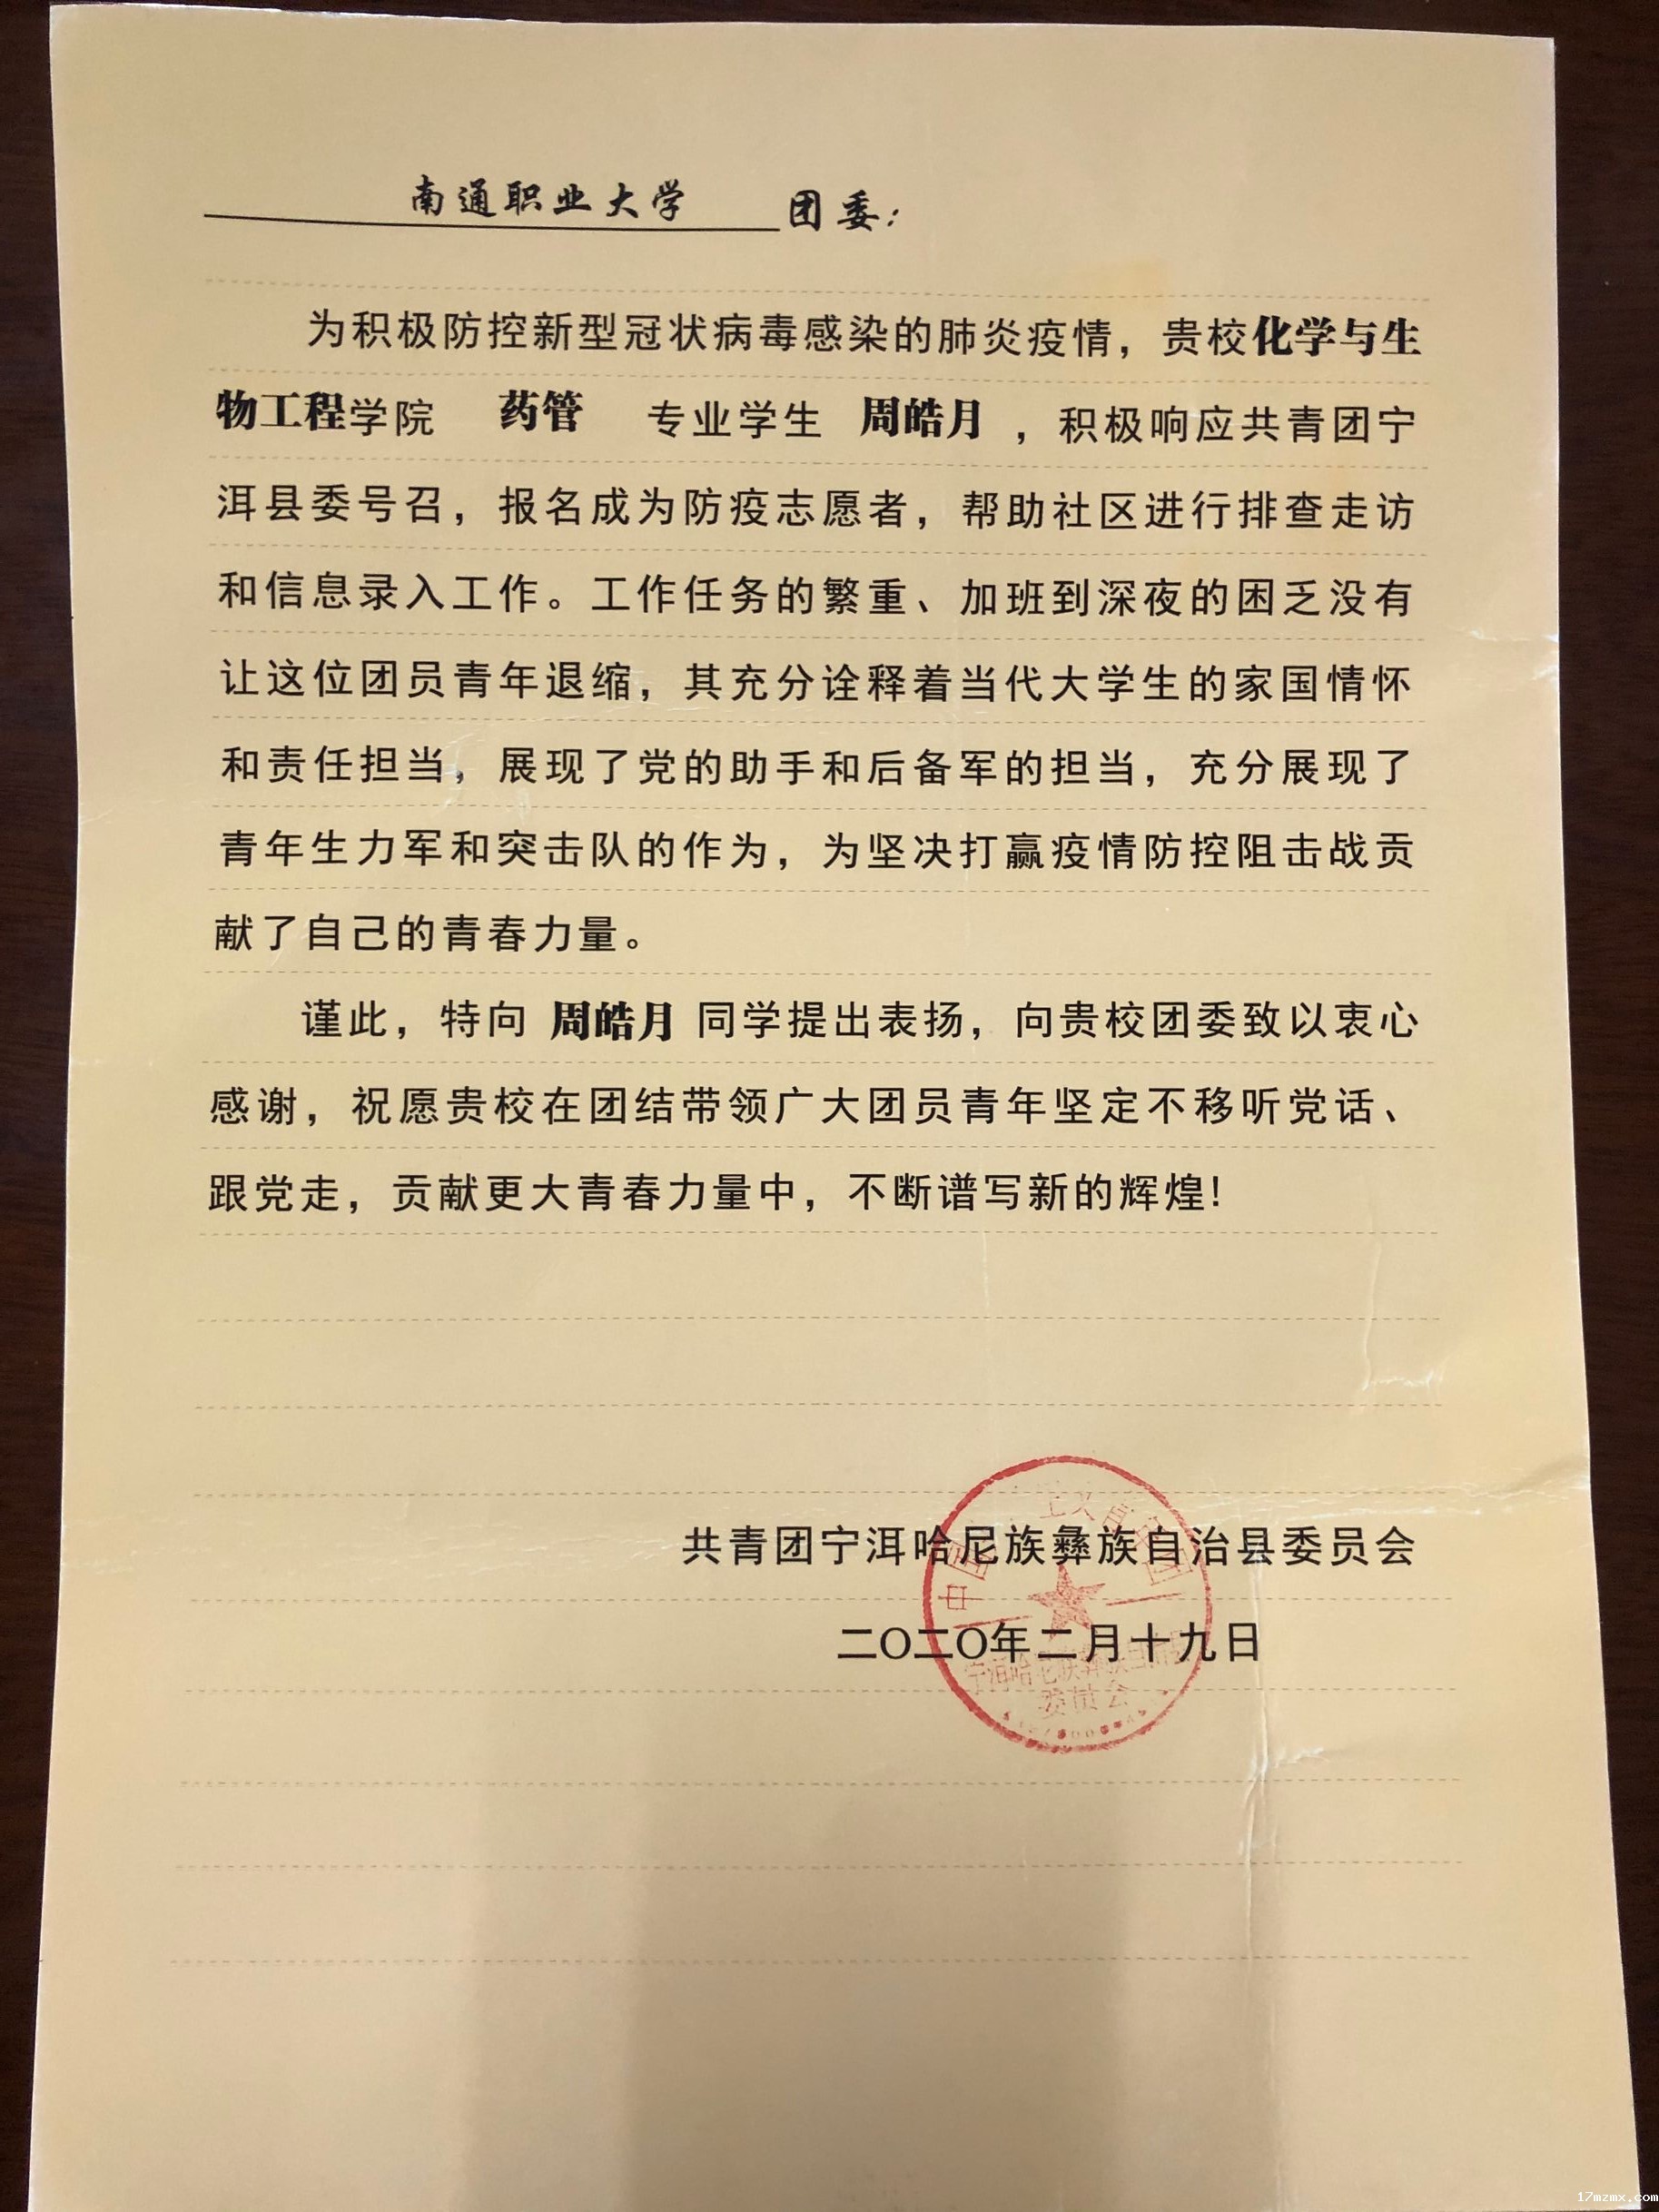 南通职业大学 团委：
为积极防控新型冠状病毒感染的肺炎疫情，贵校化学与生
物工程学院 药管 专业学生 周皓月 ，积极响应共青团宁
洱县委号召，报名成为防疫志愿者，帮助社区进行排查走访
和信息录入工作。工作任务的繁重、加班到深夜的困乏没有
让这位团员青年退缩，其充分诠释着当代大学生的家国情怀
和责任担当，展现了党的助手和后备军的担当，充分展现了
青年生力军和突击队的作为，为坚决打赢疫情防控阻击战贡
献了自己的青春力量。
谨此，特向 周皓月 同学提出表扬，向贵校团委致以衷心
感谢，祝愿贵校在团结带领广大团员青年坚定不移听党话、
跟党走，贡献更大青春力量中，不断谱写新的辉煌！
共青团宁洱哈尼族彝族自治县委员会
二〇二〇年二月十九日
中国 主义青年团
宁洱哈尼族彝族自治县
委员会
17mzmx.com